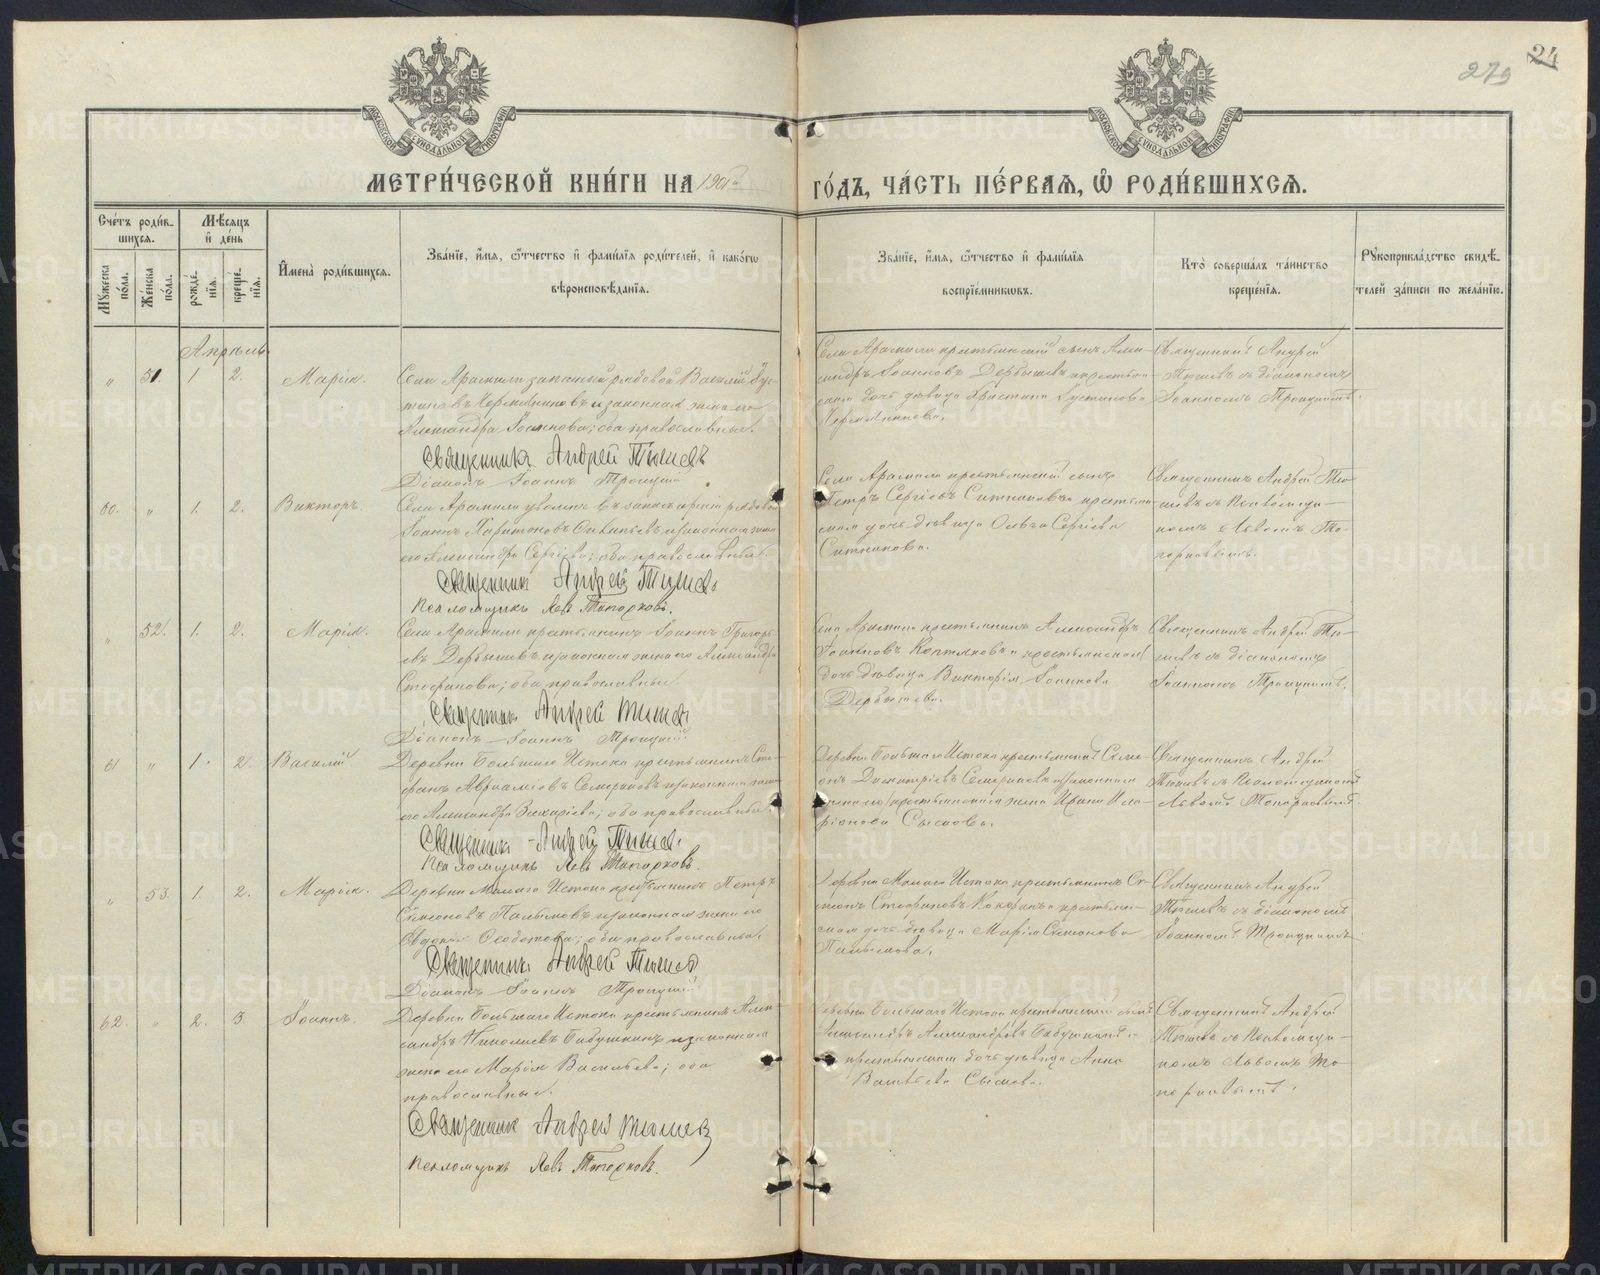 24
279
МЕТРИ́ЧЕСКОЙ КНИ́ГИ НА 1901
ГО́ДЪ, ЧА́СТЬ ПЕ́РВАѦ, Ѡ҆ РОДИ́ВШИХСѦ.
Сче́тъ роди́в-
шихсѧ.
Мꙋ́жеска по́ла.
Же́нска по́ла.
Мѣ́сѧцъ
и҆ де́нь
рожде́нїѧ.
креще́нїѧ.
И҆мена̀ роди́вшихсѧ.
Зва́нїе, и҆́мѧ, ѻ҆́тчество и҆ фами́лїѧ роди́телей, и҆ како́гѡ
вѣроисповѣ́данїѧ.
Зва́нїе, и҆́мѧ, ѻ҆́тчество и҆ фами́лїѧ
воспрїе́мникѡвъ.
Кто̀ соверша́лъ та́инство
креще́нїѧ.
Рꙋкоприкла́дство свидѣ́-
телей за́писи по жела́нїю.
Апрѣль
" 51. 1. 2. Марія.
Села Арамили запасный рядовой Василій Іус-
тиновъ и законная жена его
Александра Іоаннова; оба православные.
Священникъ Андрей
Діаконъ Іоаннъ Троицкій
Села Арамили крестьянскій сынъ Алек-
сандръ Іоанновъ Дербышевъ и крестьян-
ская дочь дѣвица Христина Іустинова
Священникъ Андрей
съ діакономъ
Іоанномъ Троицкимъ.
60. " 1. 2. Викторъ.
Села Арамили уволен. въ запасъ арміи рядовой
Іоаннъ Харитоновъ и законная жена
его Александра Сергіева; оба православные.
Священникъ Андрей
Псаломщикъ Левъ Топорковъ.
Села Арамили крестьянскій сынъ
Петръ Сергіевъ Ситниковъ и крестьян-
ская дочь дѣвица Ольга Сергіева
Ситникова.
Священникъ Андрей
съ псаломщи-
комъ Львомъ То-
порковымъ.
" 52. 1. 2. Марія.
Села Арамили крестьянинъ Іоаннъ Григорь-
евъ Дербышевъ и законная жена его Александра
Стефанова; оба православные.
Священникъ Андрей
Діаконъ Іоаннъ Троицкій
Села Арамили крестьянинъ Александръ
Іоанновъ Коптяковъ и крестьянская
дочь дѣвица Викторія Іоаннова
Дербышева.
Священникъ Андрей
съ діакономъ
Іоанномъ Троицкимъ.
61 " 1. 2. Василій
Деревни Большаго Истока крестьянинъ Сте-
фанъ Авраамовъ и законная жена
его Александра Захарьева; оба православные.
Священникъ Андрей
Псаломщикъ Левъ Топорковъ.
Деревни Большаго Истока крестьянинъ Симе-
онъ Димитріевъ
крестьянская жена Ирина Ила-
ріонова Сыскова.
Священникъ Андрей
съ псаломщикомъ
Львомъ Топорковымъ.
" 53. 1. 2. Марія.
Деревни Малаго Истока крестьянинъ Петръ
Симеоновъ Пальмовъ и законная жена его
Евдокія Ѳеодотова; оба православные.
Священникъ Андрей
Діаконъ Іоаннъ Троицкій
Деревни Малаго Истока крестьянинъ Си-
меонъ Стефановъ Кокоринъ и крестьян-
ская дочь дѣвица Марія Симеонова
Пальмова.
Священникъ Андрей
съ діакономъ
Іоанномъ Троицкимъ.
62. " 2. 3. Іоаннъ.
Деревни Большаго Истока крестьянинъ Алек-
сандръ Николаевъ Бабушкинъ и законная
жена его Марія Васильева; оба
православные.
Священникъ Андрей
Псаломщикъ Левъ Топорковъ.
Деревни Большаго Истока крестьянскій сынъ
Александръ Александровъ Бабушкинъ и
крестьянская дочь дѣвица Анна
Васильева Сыскова.
Священникъ Андрей
съ псаломщи-
комъ Львомъ То-
порковымъ.
METRIKI.GASO-URAL.RU